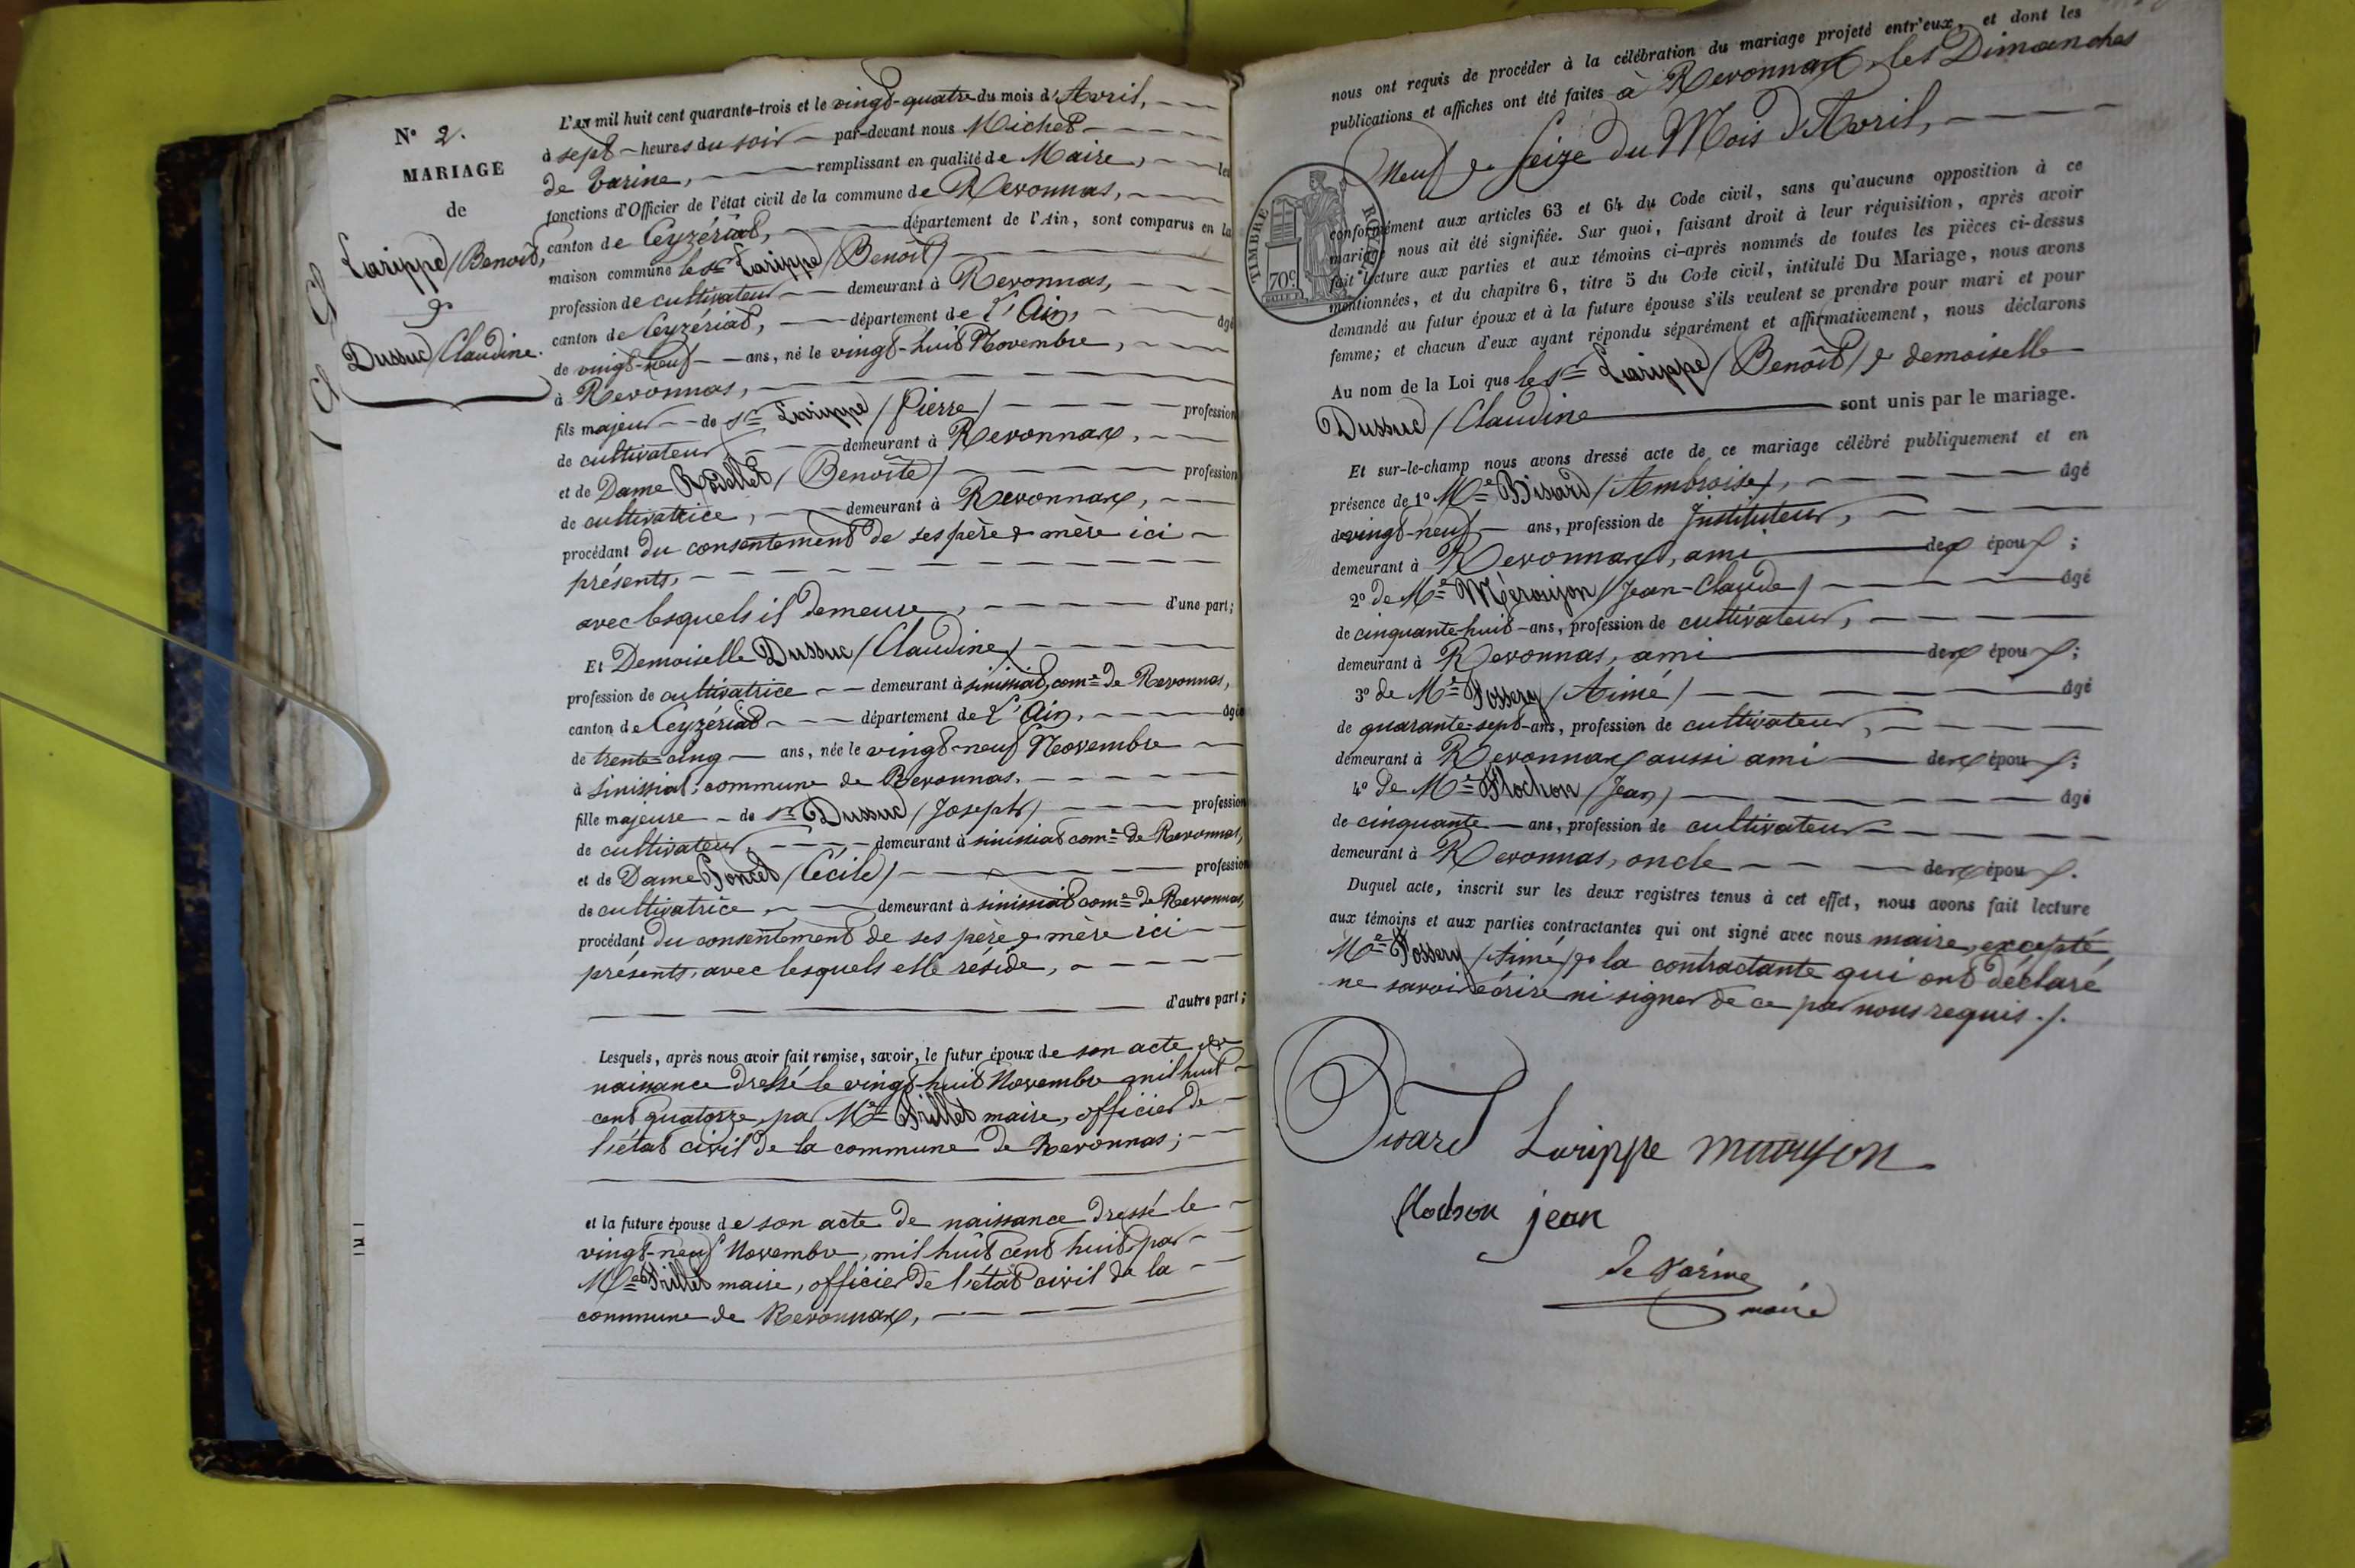 N° 2.
MARIAGE
de
Larippe / Benoit,
&
Dussuc / Claudine.
L'an mil huit cent quarante-trois et le vingt-quatre du mois d'Avril,
à sept heures du soir par-devant nous Michel
de Varine, remplissant en qualité de Maire, les
fonctions d'Officier de l'état civil de la commune de Revonnas,
canton de Ceyzériat, département de l'Ain, sont comparus en la
maison commune le Sr Larippe / Benoit /
profession de cultivateur demeurant à Revonnas,
canton de Ceyzériat, département de L'Ain, âgé
de vingt-neuf ans, né le vingt-huit Novembre,
à Revonnas,
fils majeur de Sr Larippe / Pierre / profession
de cultivateur demeurant à Revonnax,
et de Dame Rodellet / Benoîte / profession
de cultivatrice, demeurant à Revonnax,
procédant du consentement de ses père & mère ici
présents,
avec lesquels il demeure, d'une part;
Et Demoiselle Dussuc / Claudine /
profession de cultivatrice demeurant à sinissiat, come de Revonnas,
canton de Ceyzériat département de L'Ain, âgée
de trente-cinq ans, née le vingt-neuf Novembre
à sinissiat, commune de Revonnas,
fille majeure de Sr Dussuc / Joseph / profession
de cultivateur, demeurant à sinissiat come de Revonnas,
et de Dame Poncet / Cécile / profession
de cultivatrice, demeurant à sinissiat come de Revonnas,
procédant du consentement de ses père & mère ici
présents, avec lesquels elle réside,
d'autre part;
Lesquels, après nous avoir fait remise, savoir, le futur époux de son acte de
naissance dressé le vingt-huit Novembre mil huit
cent quatorze, par Me maire, officier de
l'état civil de la commune de Revonnas;
et la future épouse de son acte de naissance dressé le
vingt-neuf Novembre, mil huit cent huit, par
Me maire, officier de l'état civil de la
commune de Revonnax,
nous ont requis de procéder à la célébration du mariage projeté entr'eux, et dont les
publications et affiches ont été faites à Revonnax, les Dimanches
Neuf & Seize du Mois d'Avril,
TIMBRE
70c
conformément aux articles 63 et 64 du Code civil, sans qu'aucune opposition à ce
mariage nous ait été signifiée. Sur quoi, faisant droit à leur réquisition, après avoir
fait lecture aux parties et aux témoins ci-après nommés de toutes les pièces ci-dessus
mentionnées, et du chapitre 6, titre 5 du Code civil, intitulé Du Mariage, nous avons
demandé au futur époux et à la future épouse s'ils veulent se prendre pour mari et pour
femme; et chacun d'eux ayant répondu séparément et affirmativement, nous déclarons
Au nom de la Loi que le Sr Larippe / Benoît / & demoiselle
Dussuc / Claudine sont unis par le mariage.
Et sur-le-champ nous avons dressé acte de ce mariage célébré publiquement et en
présence de 1° Me Bisard / Ambroise /, âgé
de vingt-neuf ans, profession de Instituteur,
demeurant à Revonnax, ami des époux;
2° de Me / Jean-Claude / âgé
de cinquante-huit ans, profession de cultivateur,
demeurant à Revonnas, ami des époux;
3° de Me Possery / Aimé / âgé
de quarante-sept ans, profession de cultivateur,
demeurant à Revonnax aussi ami des époux;
4° de Me Flochon / Jean / âgé
de cinquante ans, profession de cultivateur
demeurant à Revonnas, oncle des époux.
Duquel acte, inscrit sur les deux registres tenus à cet effet, nous avons fait lecture
aux témoins et aux parties contractantes qui ont signé avec nous maire, excepté
Me Possery / Aimé / & la contractante qui ont déclaré
ne savoir écrire ni signer de ce par nous requis ./.
Bisard Larippe
flochon jean
de Varine
maire